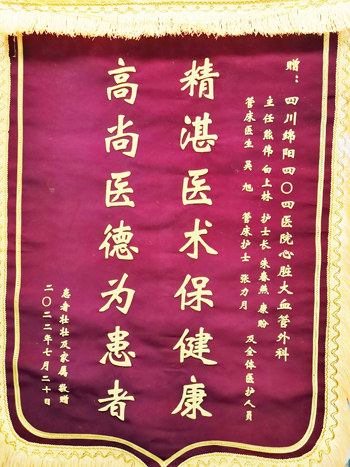 赠：四川绵阳四〇四医院心脏大血管外科
主任熊伟 白上林 护士长 朱春燕 康盼
管床医生 吴旭 管床护士 张力月 及全体医护人员
精湛医术保健康
高尚医德为患者
患者壮壮及家属 敬赠
二〇二二年七月二十日